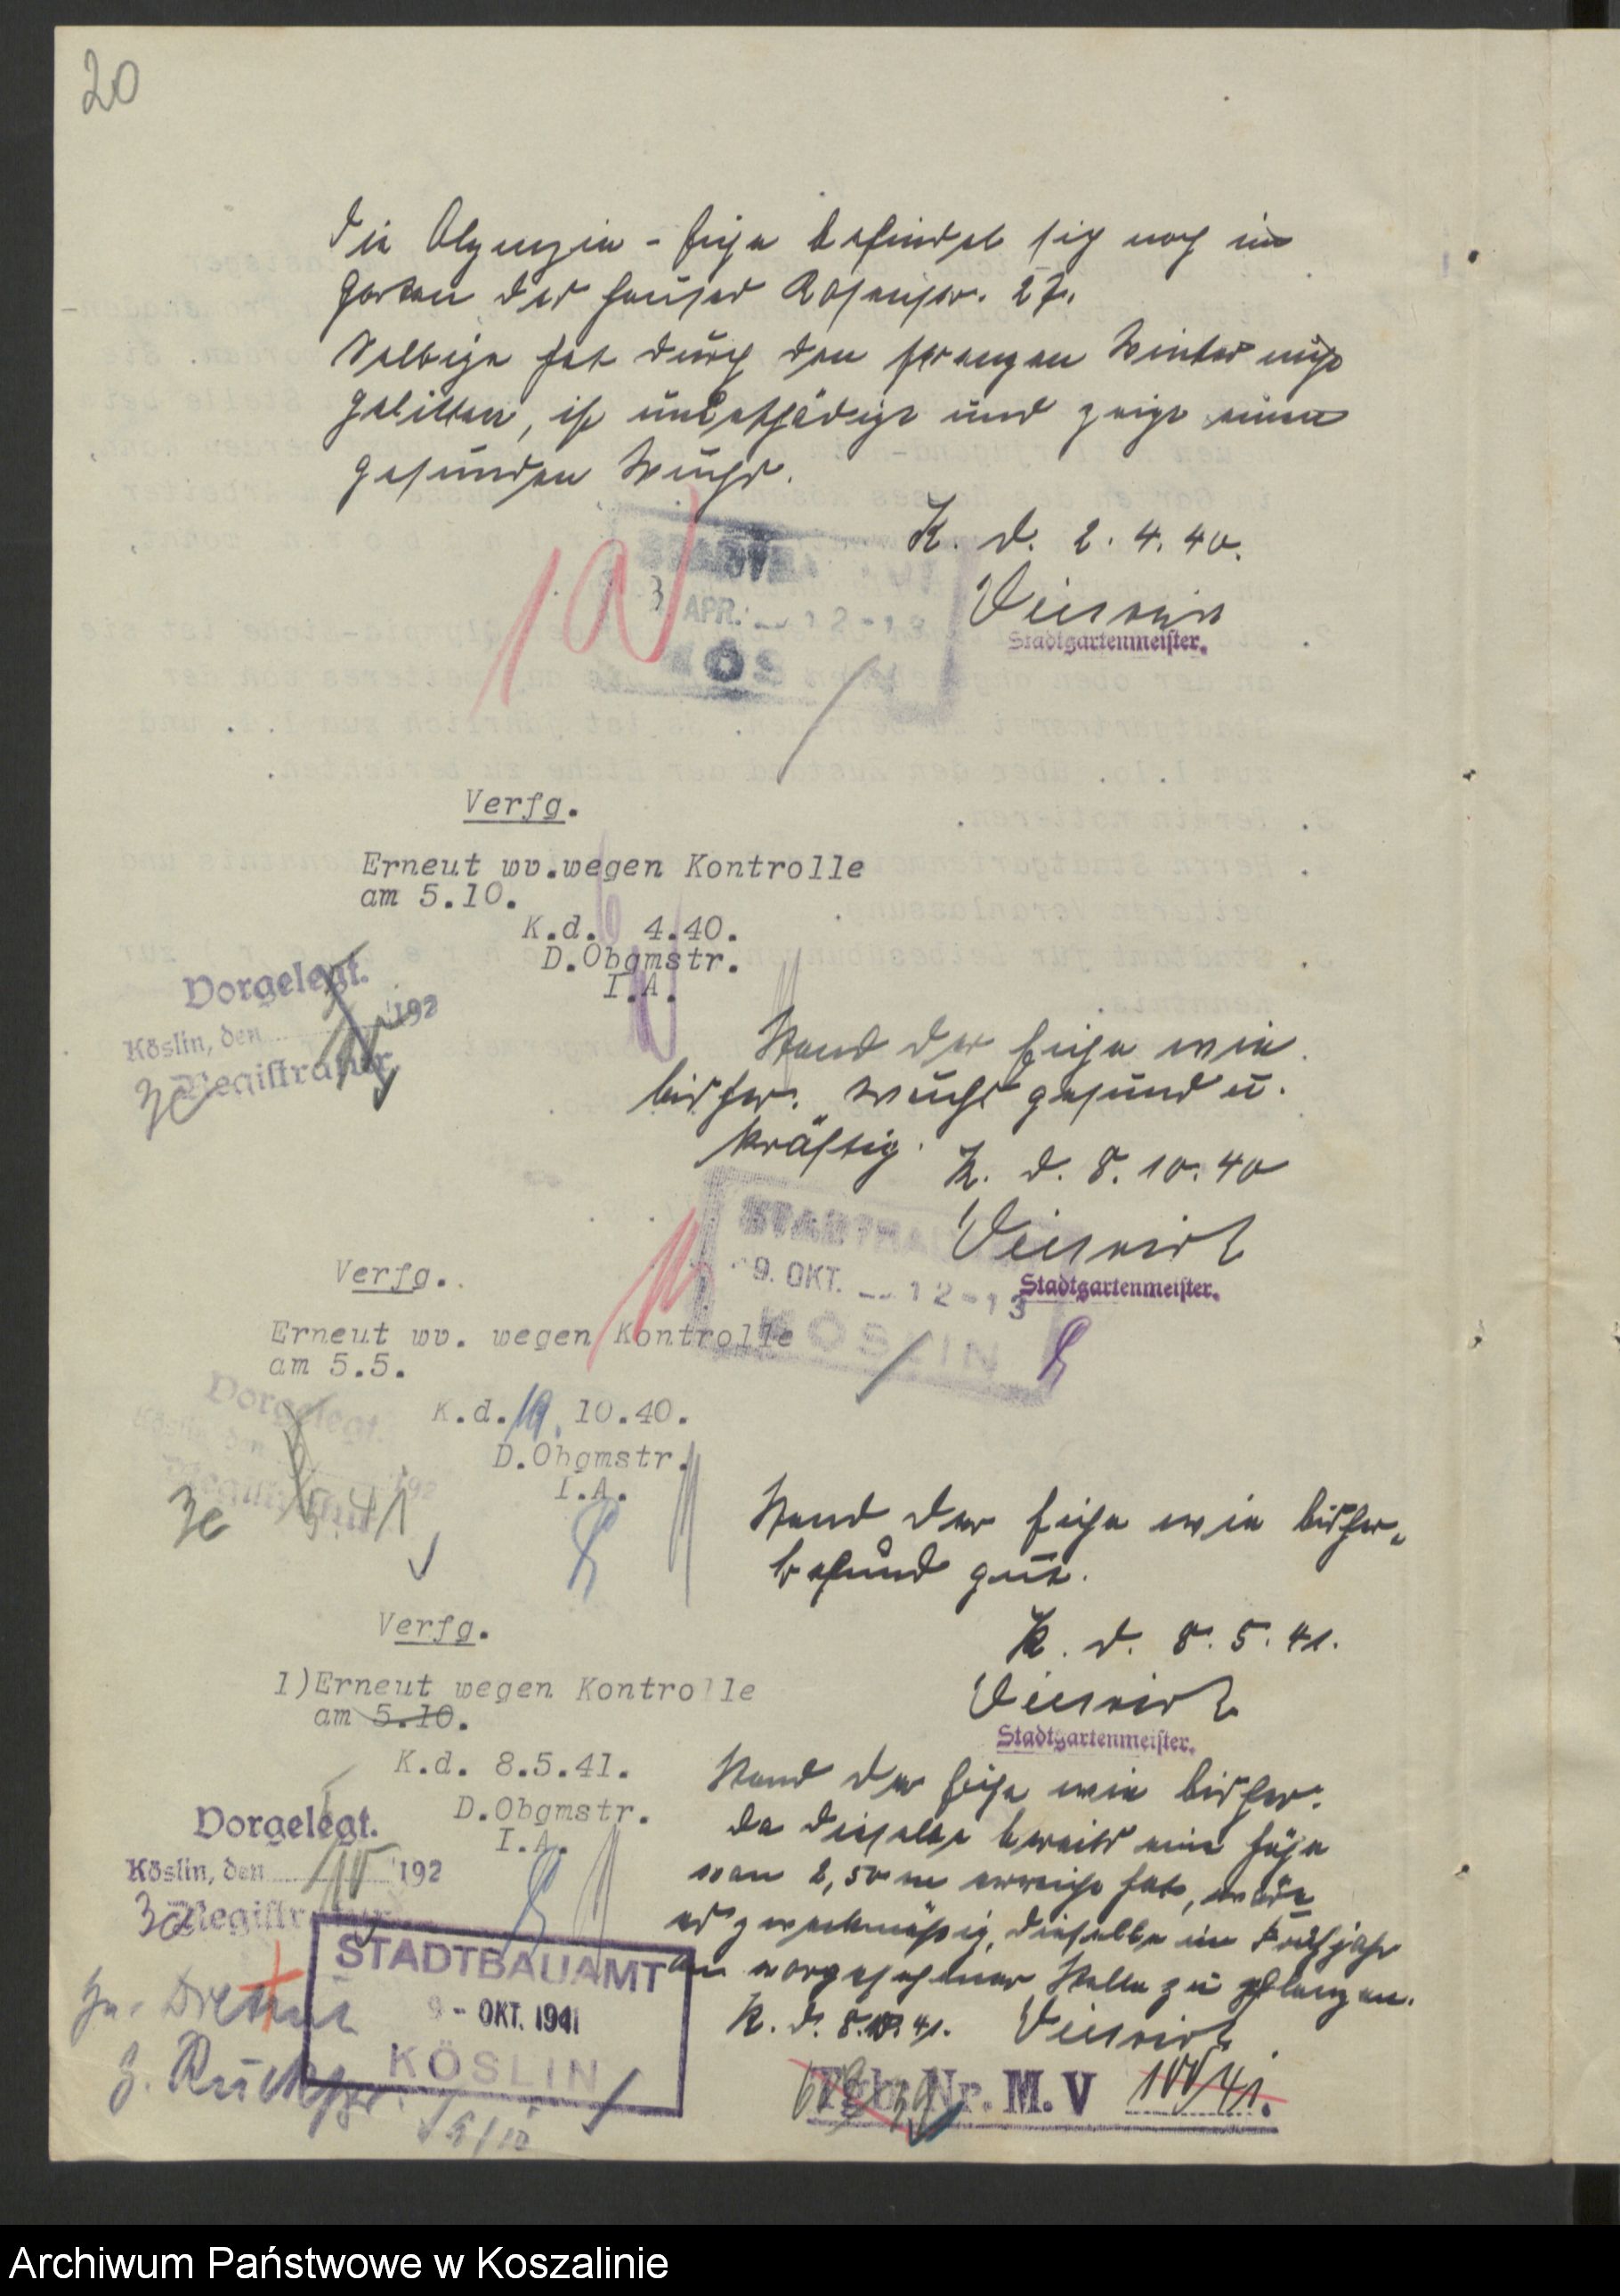 20
Die Olympia-Eiche befindet sich noch im
Garten des Hauses Rosenstr. 27.
Selbige hat durch den strengen Winter nicht
gelitten, ist unbeschädigt und zeigt einen
gesunden Wuchs.
K. d. 2. 4. 40.
Stadtgartenmeister.
3 APR. 12-13
Verfg.
Erneut wv.wegen Kontrolle
am 5.10.
K.d. 4.40.
D.Obgmstr.
I.A.
Vorgelegt.
Köslin, den 192
Registratur.
Stand der Eiche wie
bisher. Wuchs gesund u.
kräftig.
K. d. 8. 10. 40
Stadtgartenmeister.
9. OKT. 12-13
KÖSLIN
Verfg.
Erneut wv. wegen Kontrolle
am 5.5.
K.d. 10.40.
D.Obgmstr.
I.A.
Vorgelegt.
Köslin, den 192
Stand der Eiche wie bisher,
befund gut.
K. d. 8. 5. 41.
Stadtgartenmeister.
Verfg.
1)Erneut wegen Kontrolle
am 5.10.
K.d. 8.5.41.
D.Obgmstr.
I.A.
Vorgelegt.
Köslin, den 192
Registratur
Stand der Eiche wie bisher.
Da dieselbe bereits eine Höhe
von 2,50 m erreicht hat, wäre
es zweckmäßig, dieselbe im Frühjahr
an vorgesehener Stelle zu pflanzen.
K. d. 8. 10. 41.
STADTBAUAMT
9 - OKT. 1941
KÖSLIN
z. Rückspr.
Tgb. Nr. M. V 100/41.
Archiwum Państwowe w Koszalinie